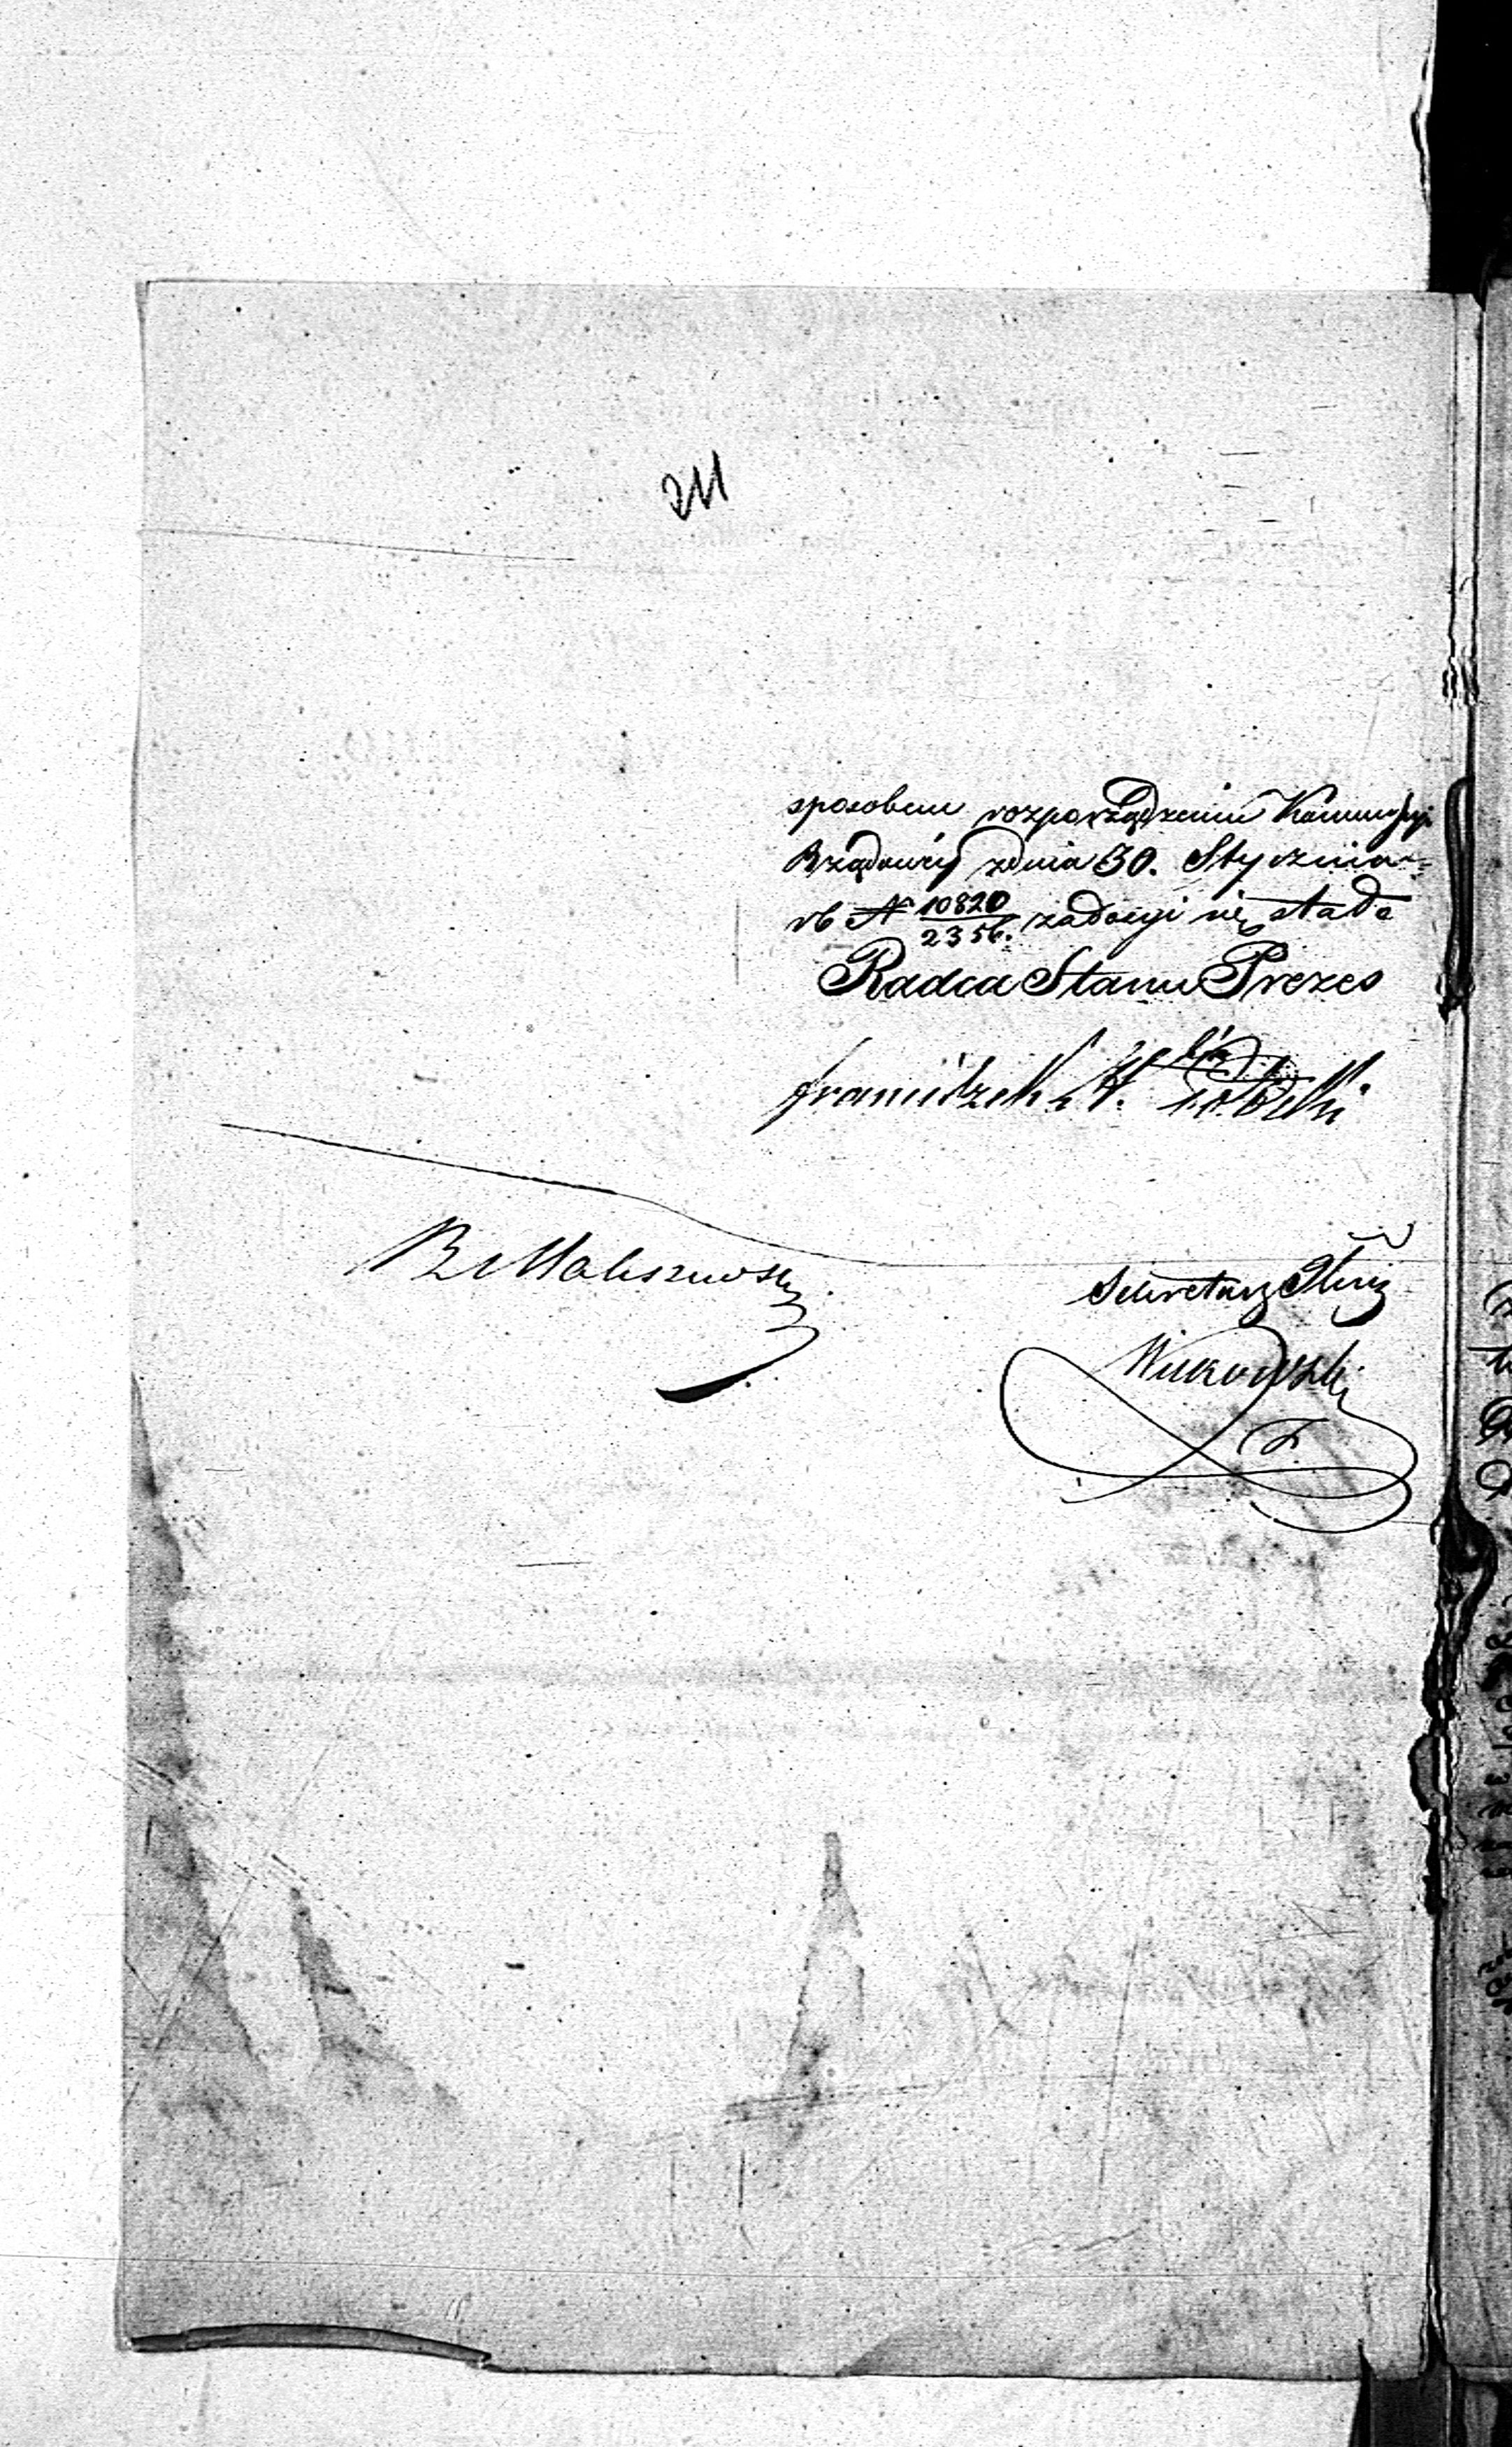 211
sposobem rozporządzeniu Kommissyi
Rządowéy zdnia 30. Stycznia
rb N 10820/2356. zadosyć się stało
Radca Stanu Prezes
Franciszek H.
R Maliszewski
Sekretarz Jlny